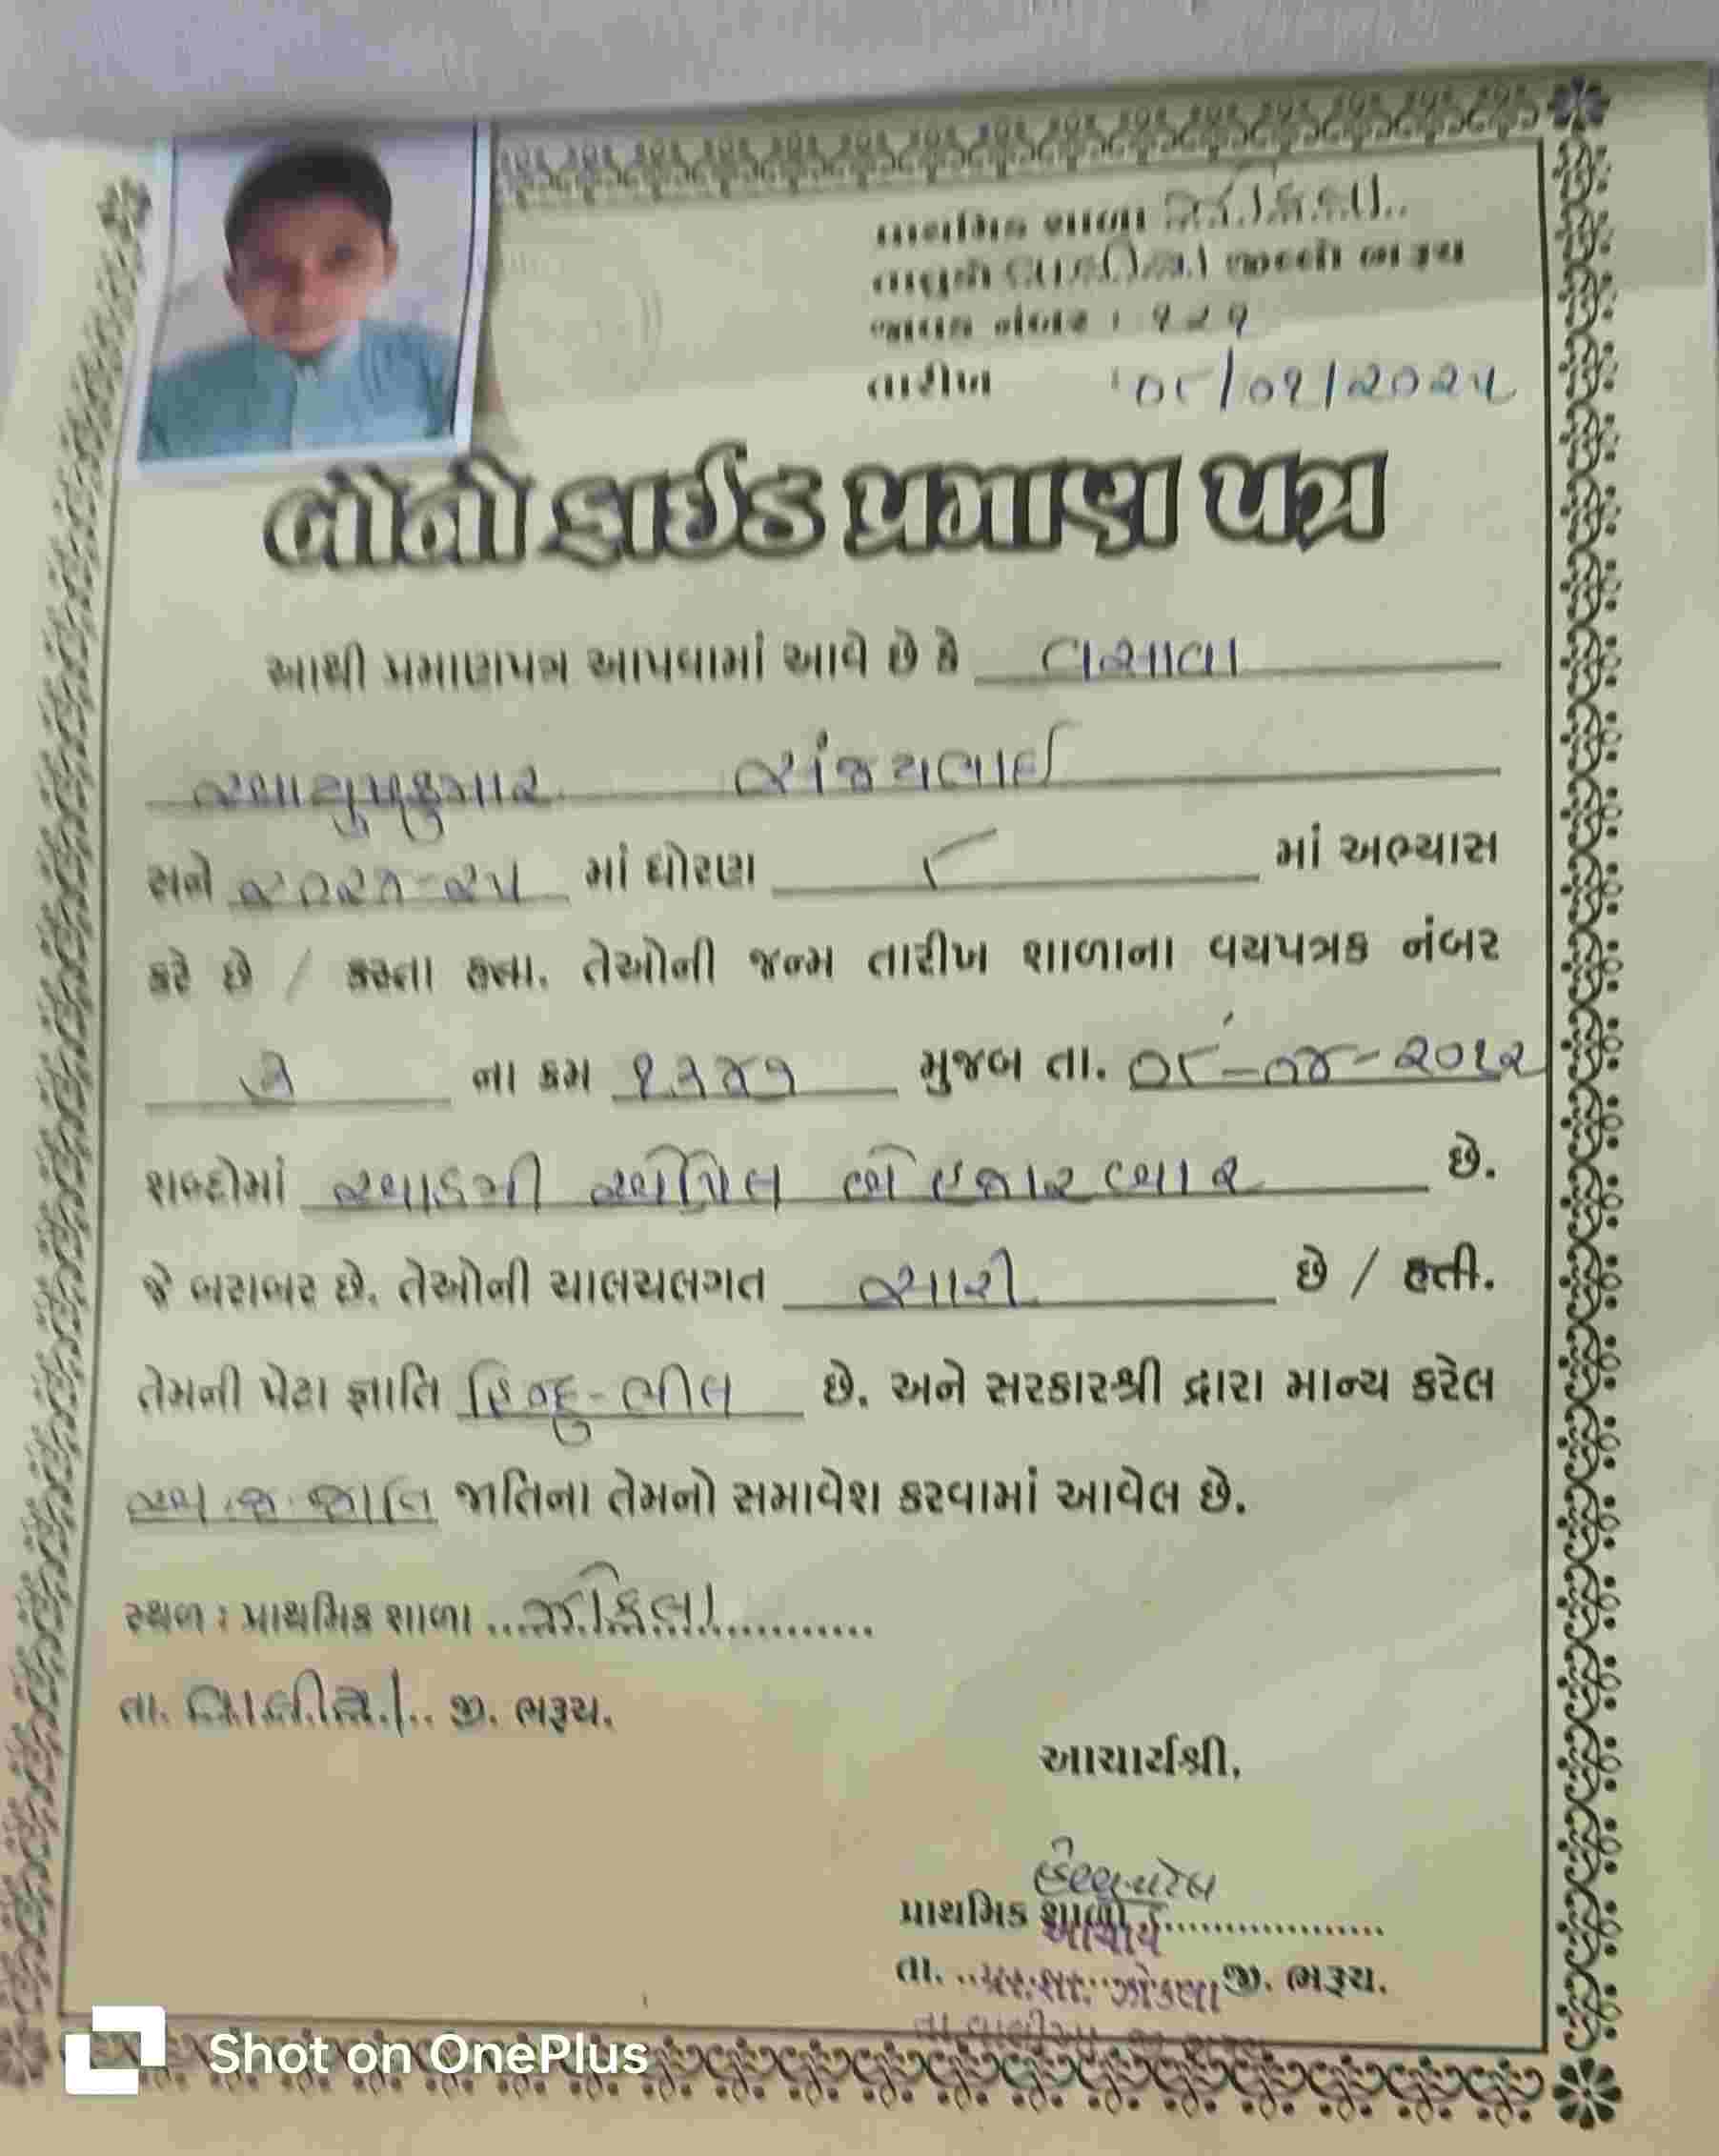 પ્રાથમિક શાળા ઝોકલા..
તાલુકો વાલીઆ જીલ્લો ભરૂચ
જાવક નંબર : ૧૨૧
તારીખ : ૦૮/૦૧/૨૦૨૫
બોનોફાઈડ પ્રમાણ પત્ર
આથી પ્રમાણપત્ર આપવામાં આવે છે કે વસાવા
આયુષકુમાર સંજયભાઈ
સને ૨૦૨૪-૨૫ માં ધોરણ ૮ માં અભ્યાસ
કરે છે / કરતા હતા. તેઓની જન્મ તારીખ શાળાના વયપત્રક નંબર
૩ ના ક્રમ મુજબ તા. ૦૮-૦૪-૨૦૧૨
શબ્દોમાં આઠમી એપ્રિલ બે હજાર બાર છે.
જે બરાબર છે. તેઓની ચાલચલગત સારી છે / હતી.
તેમની પેટા જ્ઞાતિ હિન્દુ-ભીલ છે. અને સરકારશ્રી દ્વારા માન્ય કરેલ
અ.જ.જાતિ જાતિના તેમનો સમાવેશ કરવામાં આવેલ છે.
સ્થળ : પ્રાથમિક શાળા ...ઝોકલા............
તા. વાલીઆ.. જી. ભરૂચ.
આચાર્યશ્રી,
પ્રાથમિક શાળા ....................
આચાર્ય
તા. ..પ્રા.શા. ઝોકલા જી. ભરૂચ.
તા.વાલીઆ જી.ભરૂચ
Shot on OnePlus